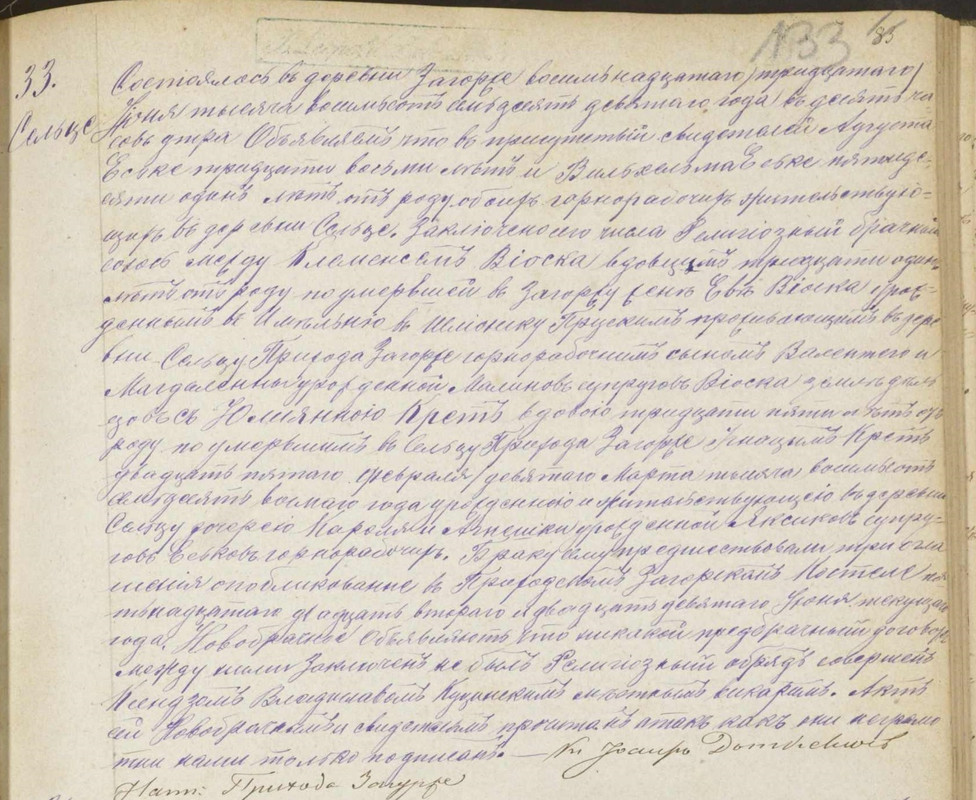 133 83
33.
Сельце
Состоялось въ деревни Загорже восимьнадцатаго /тридцатаго/
Іюня тысяча восимьсотъ семьдесятъ девятаго года въ десять ча
совъ утра Объявляемъ что въ присутствіи свидетелей Августа
Еське тридцати восьми летъ и Вильхельма Еське пятидε-
сяти однъ летъ отъ роду, обоихъ горнорабочихъ жительствую-
щихъ въ деревни Сельце. Заключено сего числа Религіозный брачный
союзъ между Клеменсемъ Віоска вдовцемъ тридцати одинъ
летъ отъ роду по умершей въ Загоржу жене Еве Віоска урож-
деннымъ въ въ Прускимъ проживающимъ въ дере
вни Сельцу Прихода Загорже горнорабочимъ сыномъ Валентего и
Магдалены урожденной Малиновъ супруговъ Віоска земледель
цовъ съ Юліянною Кретъ вдовою тридцати пяти летъ отъ
роду по умершимъ въ Сельцу Прихода Загорже Игнацымъ Кретъ
двадцать пятаго февраля /девятаго Марта тысяча восимьсотъ
семьдесятъ восмаго года урожденною и жительствующею въ деревни
Сельцу дочерею Кароля и Агнешки урожденной супру-
говъ горнорабочихъ. Браку сему предшествовали три огла
шенія опобликованые въ Приходскомъ Загорскомъ Костеле пя
тьнадцатаго двадцать втораго и двадцать девятаго Іюня текущаго
года. Новобрачные Объявляютъ что никакой предбрачный договоръ
между ними Заключенъ не былъ Религіозный обрядъ совершенъ
Ксендземъ Владиславомъ местнымъ викаримъ. Актъ
сей Новобрачнымъ и свидетелямъ прочитанъ а такъ какъ они неграмо
тни нами только подписанъ. — Кс
Наст: Прихода Загурже